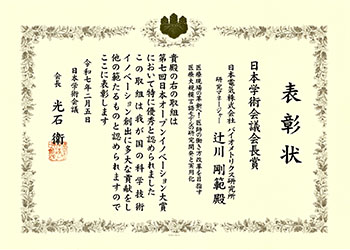 表彰状
日本学術会議会長賞
日本電気株式会社 バイオメトリクス研究所
研究マネージャー
辻川 剛範 殿
医療現場の革新へ!医師の働き方改革を目指す
医療大規模言語モデルの研究開発と実用化
貴殿の右の取組は
第七回日本オープンイノベーション大賞
において特に優秀と認められました
この取組は我が国の科学技術
イノベーション創出に多大な貢献をし
他の範たるものと認められますので
ここに表彰します
令和七年二月五日
日本学術会議
会長 光石 衛